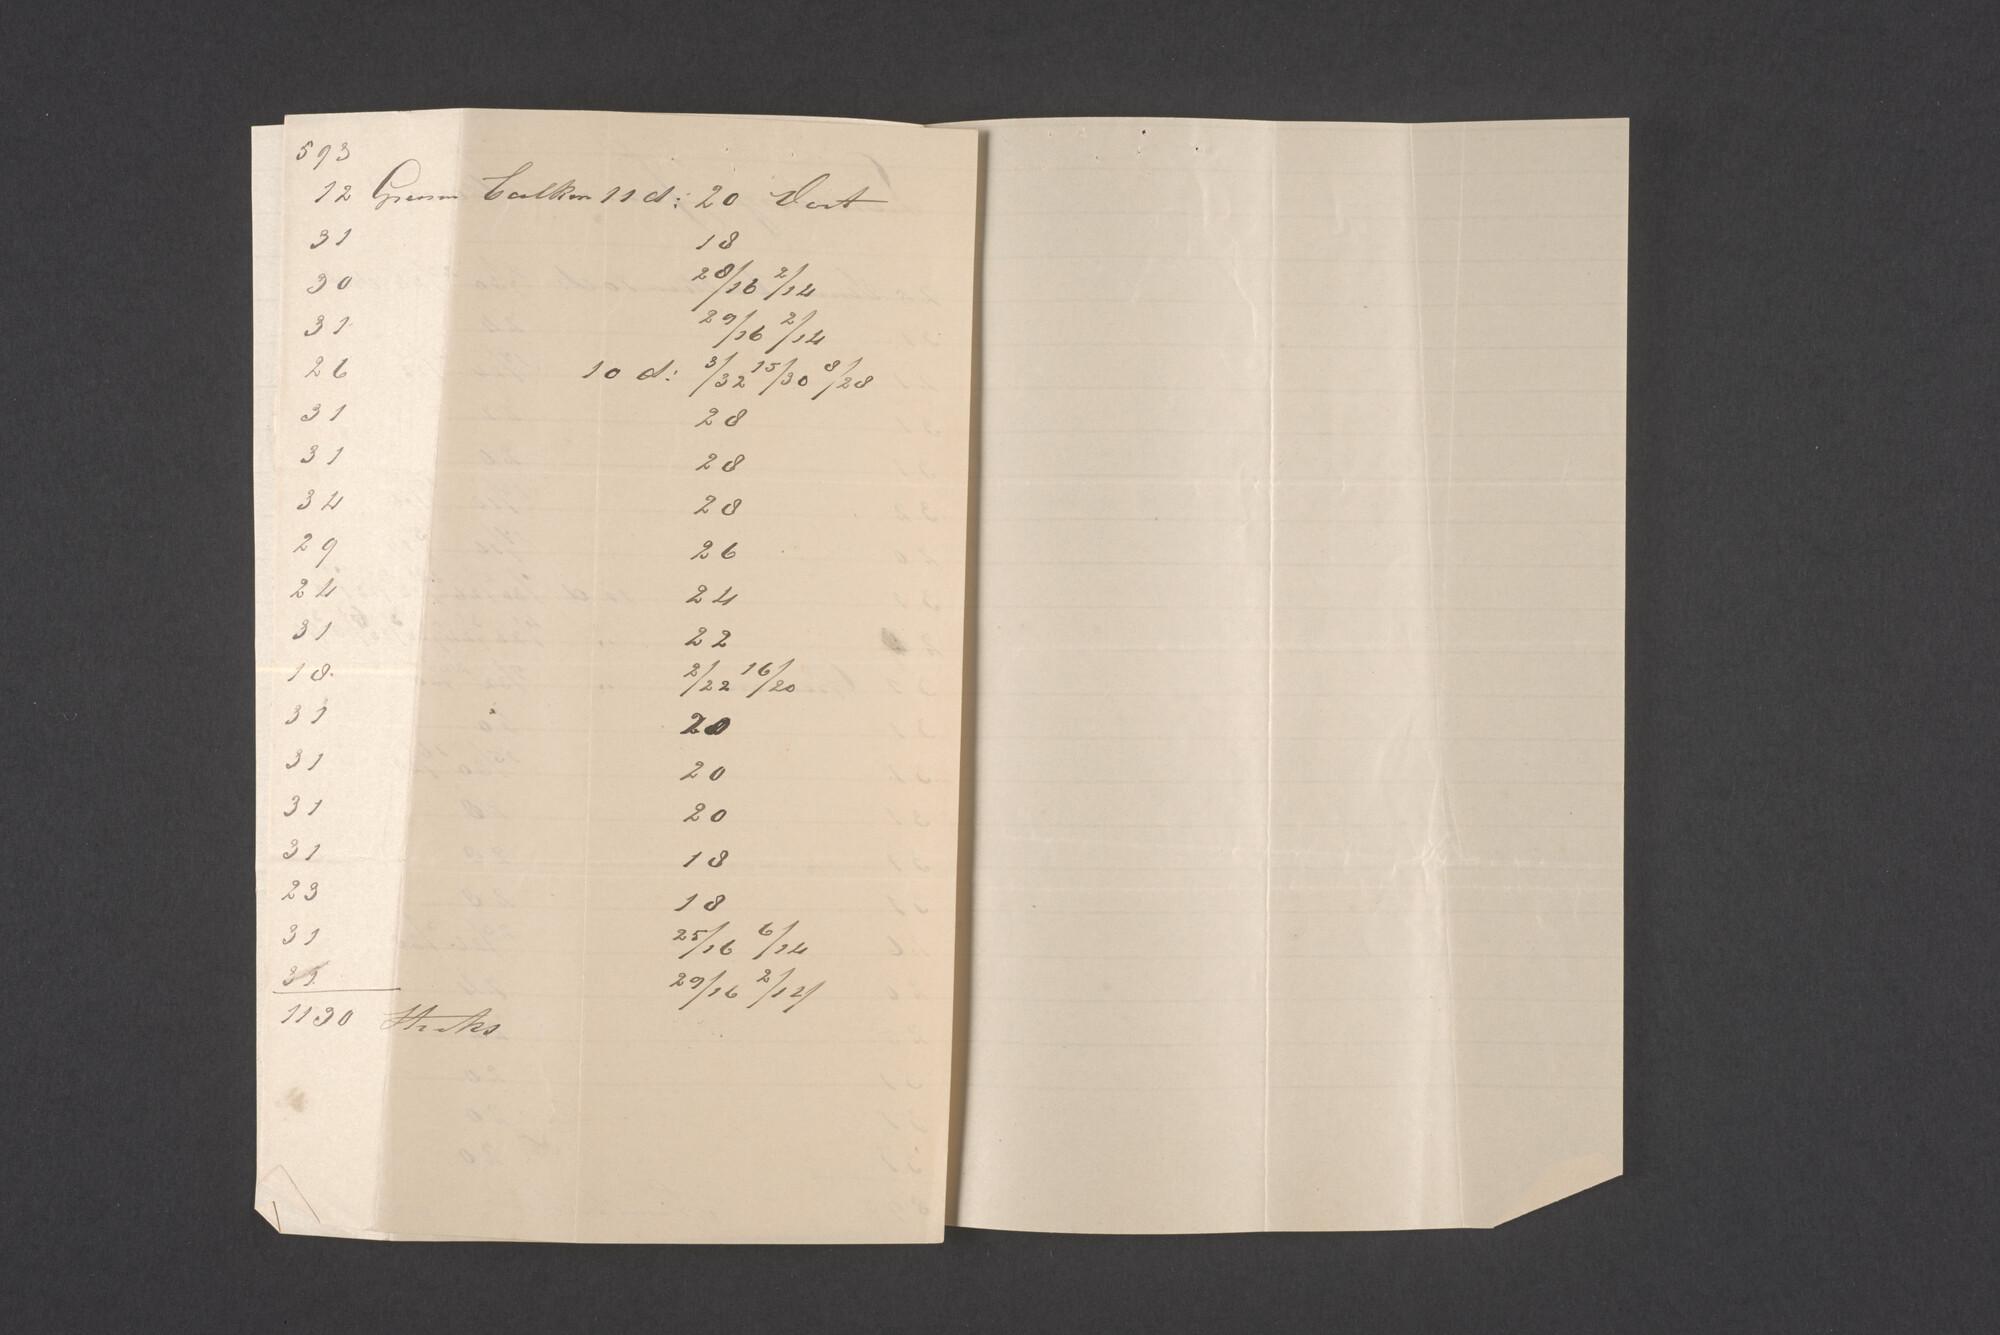 593
12 Grenen balken 11 d: 20 Voet
31 18
30 28/16 2/14
31 29/16 2/14
26 10 d: 3/32 15/30 8/28
31 28
31 28
34 28
29 26
24 24
31 22
18 2/22 16/20
31 20
31 20
31 20
31 18
23 18
31 25/16 6/14
31 29/16 2/14
1130 Stuks